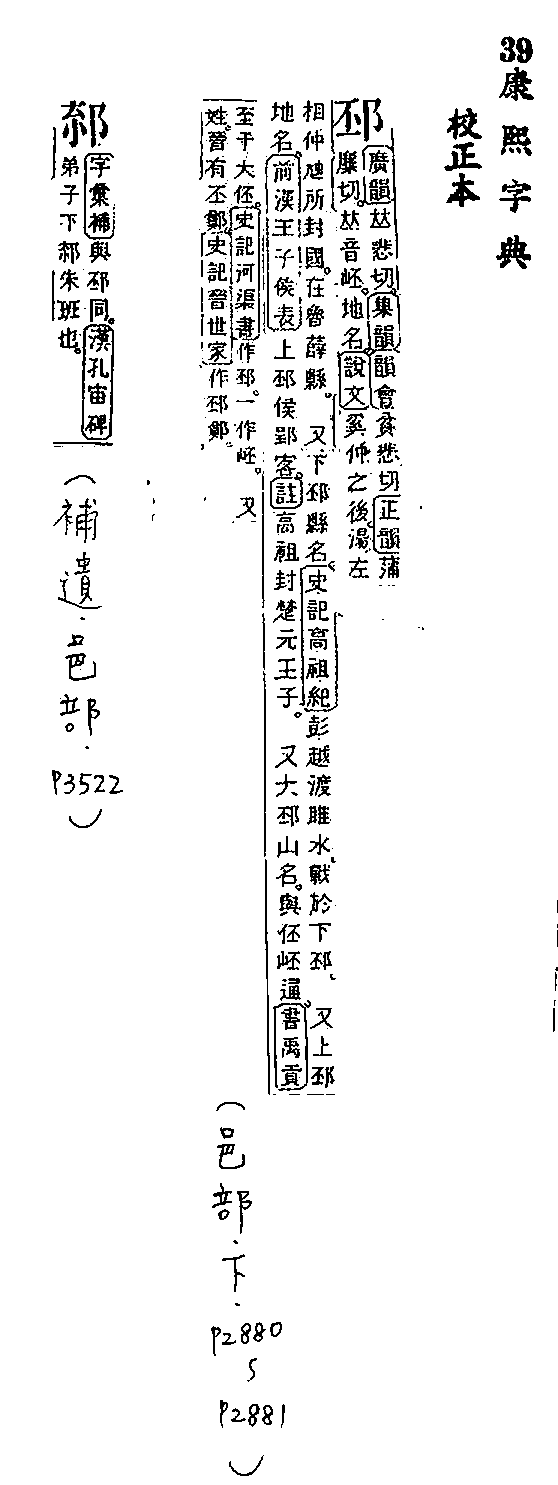 39康熙字典
校正本
邳
廣韻𠀤悲切。集韻韻會貧悲切正韻蒲
麋切。𠀤音岯。地名。說文奚仲之後湯左
相仲虺所封國。在魯薛縣。 又下邳縣名史記高祖紀彭越渡睢水。戰於下邳。 又上邳
地名。前漢王子侯表上邳侯郢客。註高祖封楚元王子。 又大邳山名。與伾岯通。書禹貢
至于大伾。史記河渠書作邳。一作岯。 又
姓。晉有丕鄭。史記晉世家作邳鄭。
(邑部.下.
P2880
~
P2881
)
字彙補與邳同。漢孔宙碑
弟子下朱班也。
(補遺.邑部.
P3522
)